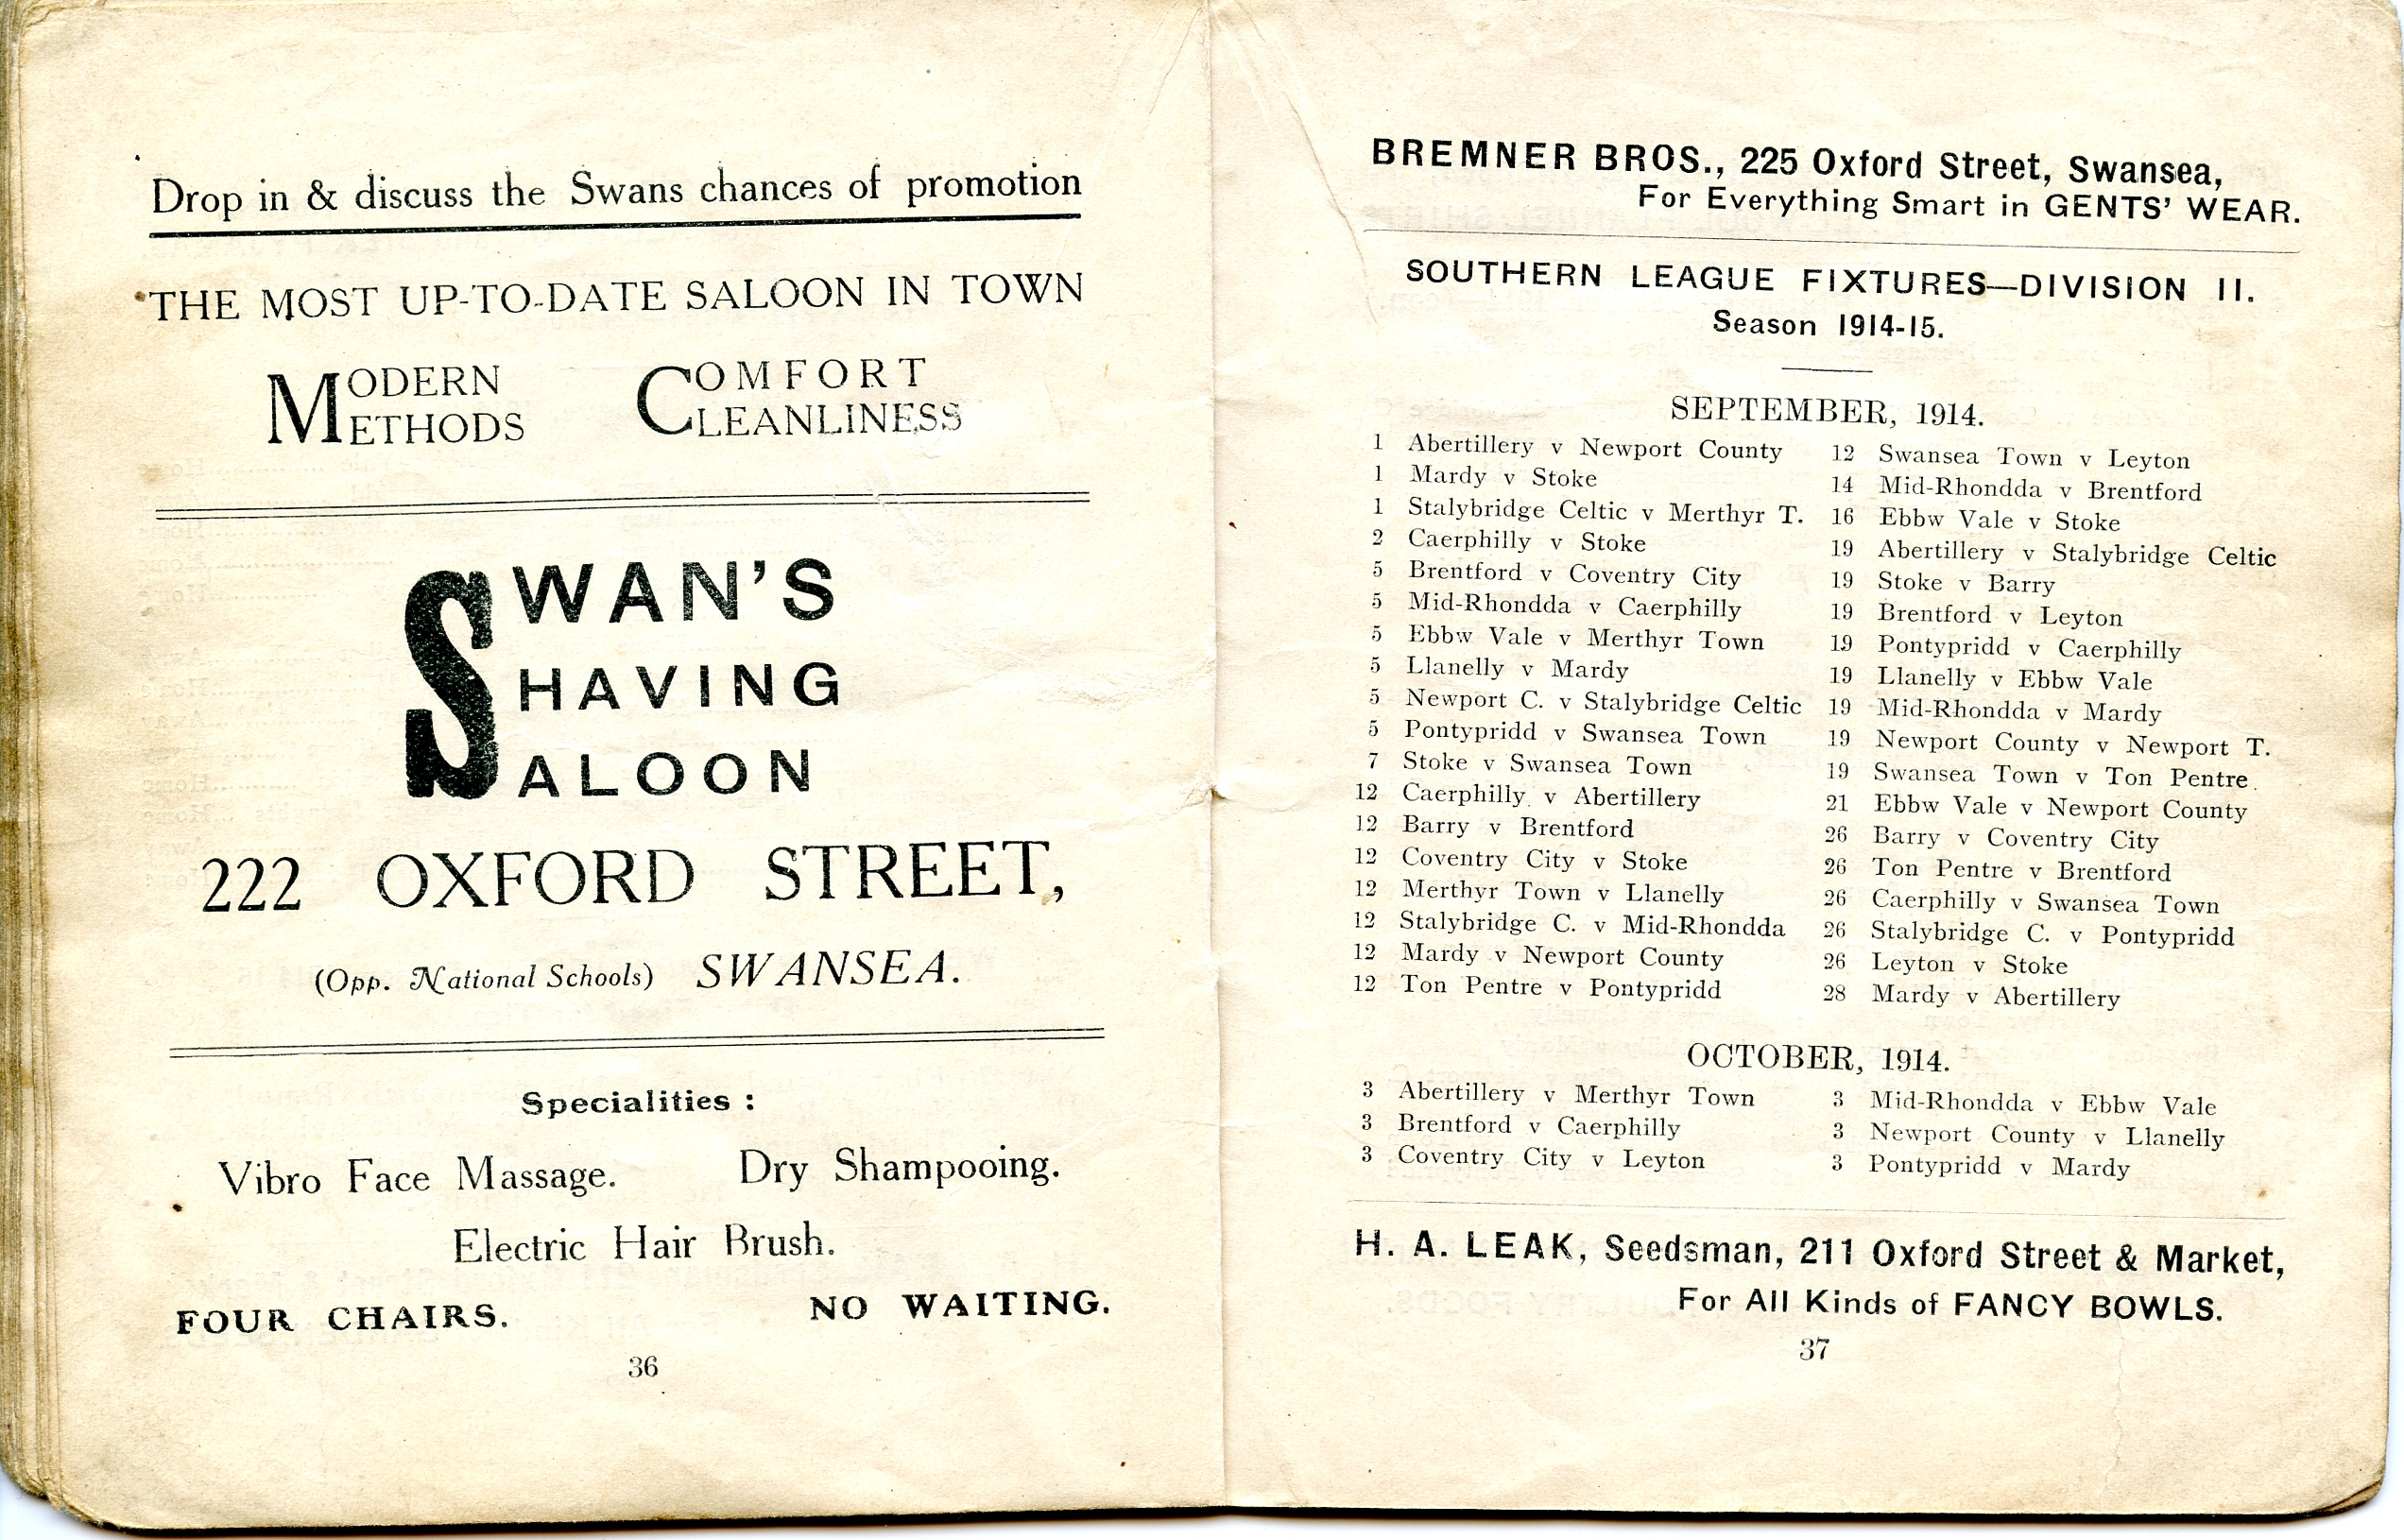 Drop in & discuss the Swans chances of promotion
THE MOST UP-TO-DATE SALOON IN TOWN
MODERN METHODS
COMFORT CLEANLINESS
SWAN'S
SHAVING
SALOON
222 OXFORD STREET,
(Opp. National Schools) SWANSEA.
Specialities :
Vibro Face Massage. Dry Shampooing.
Electric Hair Brush.
FOUR CHAIRS. NO WAITING.
36
BREMNER BROS., 225 Oxford Street, Swansea,
For Everything Smart in GENTS' WEAR.
SOUTHERN LEAGUE FIXTURES—DIVISION II.
Season 1914-15.
SEPTEMBER, 1914.
1 Abertillery v Newport County
1 Mardy v Stoke
1 Stalybridge Celtic v Merthyr T.
2 Caerphilly v Stoke
5 Brentford v Coventry City
5 Mid-Rhondda v Caerphilly
5 Ebbw Vale v Merthyr Town
5 Llanelly v Mardy
5 Newport C. v Stalybridge Celtic
5 Pontypridd v Swansea Town
7 Stoke v Swansea Town
12 Caerphilly v Abertillery
12 Barry v Brentford
12 Coventry City v Stoke
12 Merthyr Town v Llanelly
12 Stalybridge C. v Mid-Rhondda
12 Mardy v Newport County
12 Ton Pentre v Pontypridd
12 Swansea Town v Leyton
14 Mid-Rhondda v Brentford
16 Ebbw Vale v Stoke
19 Abertillery v Stalybridge Celtic
19 Stoke v Barry
19 Brentford v Leyton
19 Pontypridd v Caerphilly
19 Llanelly v Ebbw Vale
19 Mid-Rhondda v Mardy
19 Newport County v Newport T.
19 Swansea Town v Ton Pentre
21 Ebbw Vale v Newport County
26 Barry v Coventry City
26 Ton Pentre v Brentford
26 Caerphilly v Swansea Town
26 Stalybridge C. v Pontypridd
26 Leyton v Stoke
28 Mardy v Abertillery
OCTOBER, 1914.
3 Abertillery v Merthyr Town
3 Brentford v Caerphilly
3 Coventry City v Leyton
3 Mid-Rhondda v Ebbw Vale
3 Newport County v Llanelly
3 Pontypridd v Mardy
H. A. LEAK, Seedsman, 211 Oxford Street & Market,
For All Kinds of FANCY BOWLS.
37